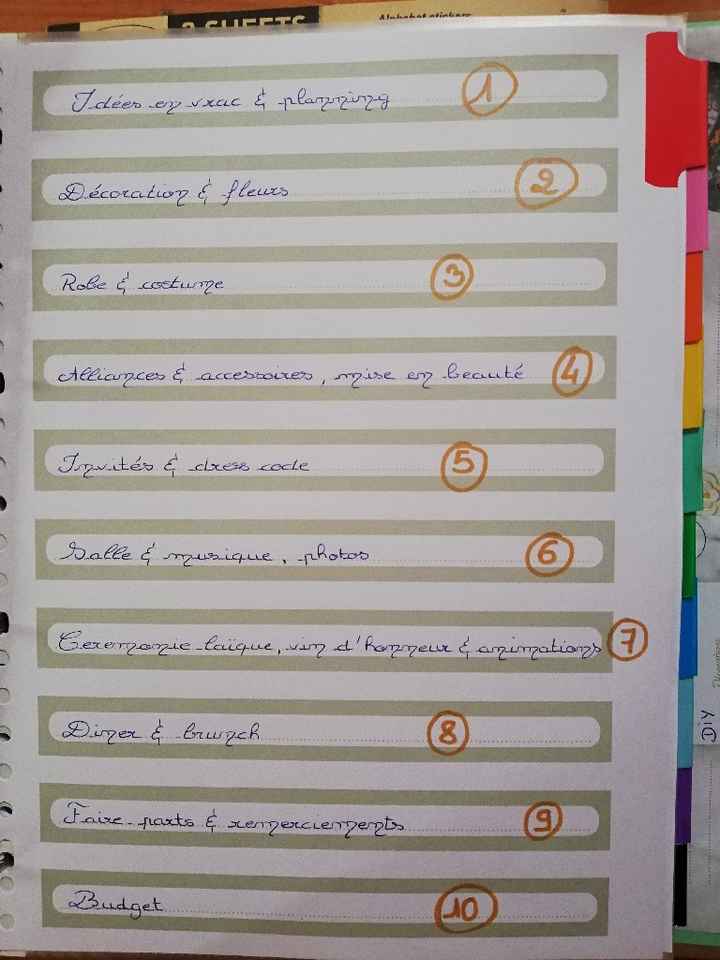 3 SHEETS
Alphabet stickers
Idées en vrac & planning 1
Décoration & fleurs 2
Robe & costume 3
Alliances & accessoires, mise en beauté 4
Invités & dress code 5
Salle & musique, photos 6
Ceremonie laïque, vin d'honneur & animations 7
Diner & brunch 8
Faire-parts & remerciements 9
Budget 10
DiY